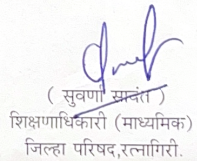 ( सुवर्णा सावंत )
शिक्षणाधिकारी (माध्यमिक)
जिल्हा परिषद,रत्नागिरी.